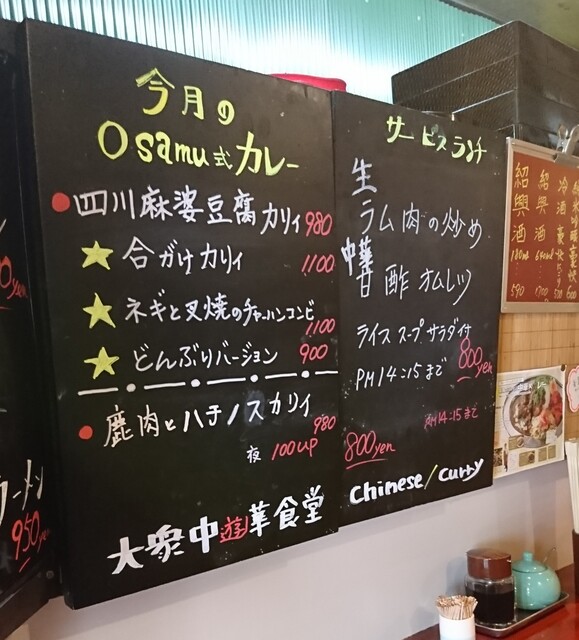 今月の
Osamu式カレー
四川麻婆豆腐カリィ 980
合がけカリィ 1100
ネギと叉焼のチャーハンコンビ 1100
どんぶりバージョン 900
鹿肉とハチノスカリィ 980
夜 100up
大衆中遊華食堂
サービスランチ
生ラム肉の炒め
中華甘酢オムレツ
ライス スープ サラダ付
800yen
PM14:15まで
PM14:15まで
800yen
Chinese/Curry
ラーメン
950yen
紹興酒 180ml 590
紹興酒
冷酒